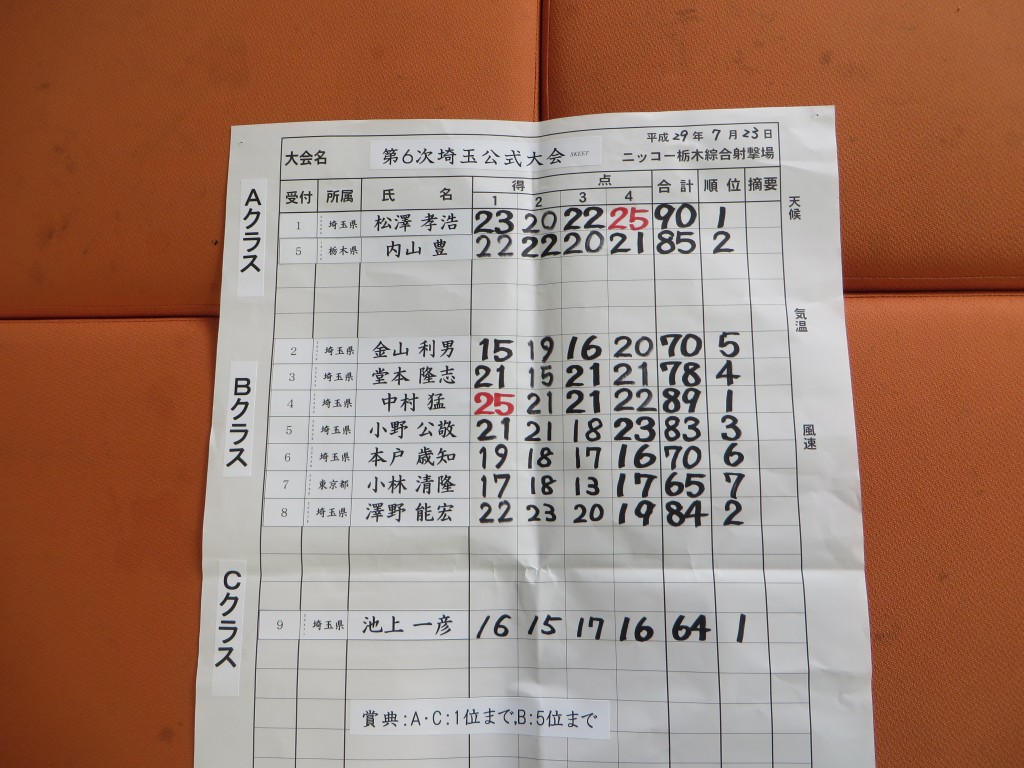 平成29年 7月23日
大会名 第6次埼玉公式大会 SKEET ニッコー栃木綜合射撃場
受付 所属 氏 名 得 点 合計 順位 摘要
1 2 3 4
天候
Aクラス
1 埼玉県 松澤 孝浩 23 20 22 25 90 1
5 栃木県 内山 豊 22 22 20 21 85 2
気温
Bクラス
2 埼玉県 金山 利男 15 19 16 20 70 5
3 埼玉県 堂本 隆志 21 15 21 21 78 4
4 埼玉県 中村 猛 25 21 21 22 89 1
5 埼玉県 小野 公敬 21 21 18 23 83 3
風速
6 埼玉県 本戸 歳知 19 18 17 16 70 6
7 東京都 小林 清隆 17 18 13 17 65 7
8 埼玉県 澤野 能宏 22 23 20 19 84 2
Cクラス
9 埼玉県 池上 一彦 16 15 17 16 64 1
賞典:A・C:1位まで,B:5位まで